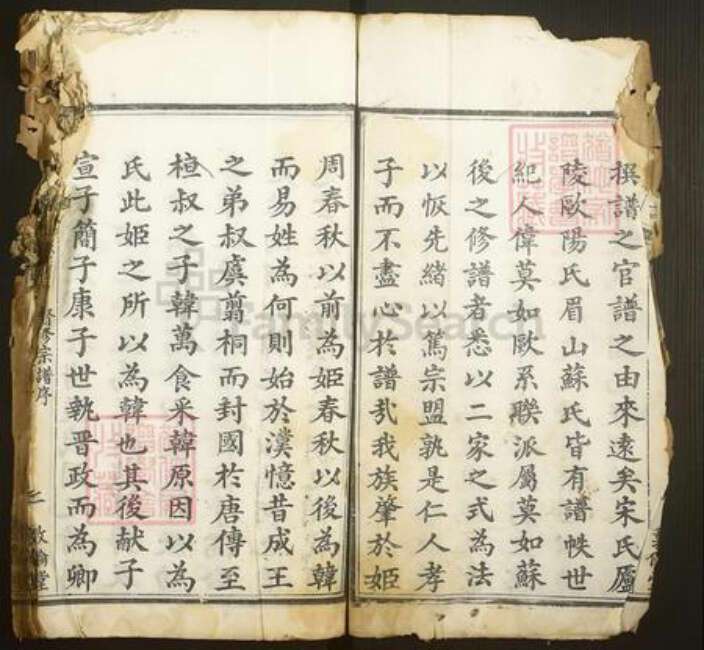 撰譜之官譜之由來遠矣宋氏廬
陵歐陽氏眉山蘇氏皆有譜帙世
紀人偉莫如歐系聯派屬莫如蘇
後之修譜者悉以二家之式為法
以恢先緒以篤宗盟孰是仁人孝
子而不盡心於譜㢤我族肇於姬
周春秋以前為姬春秋以後為韓
而易姓為何則始於漢憶昔成王
之弟叔虞翦桐而封國於唐傳至
桓叔之子韓萬食采韓原因以為
氏此姬之所以為韓也其後献子
宣子簡子康子世執晋政而為卿
修宗譜序
敦倫堂
FamilySearch